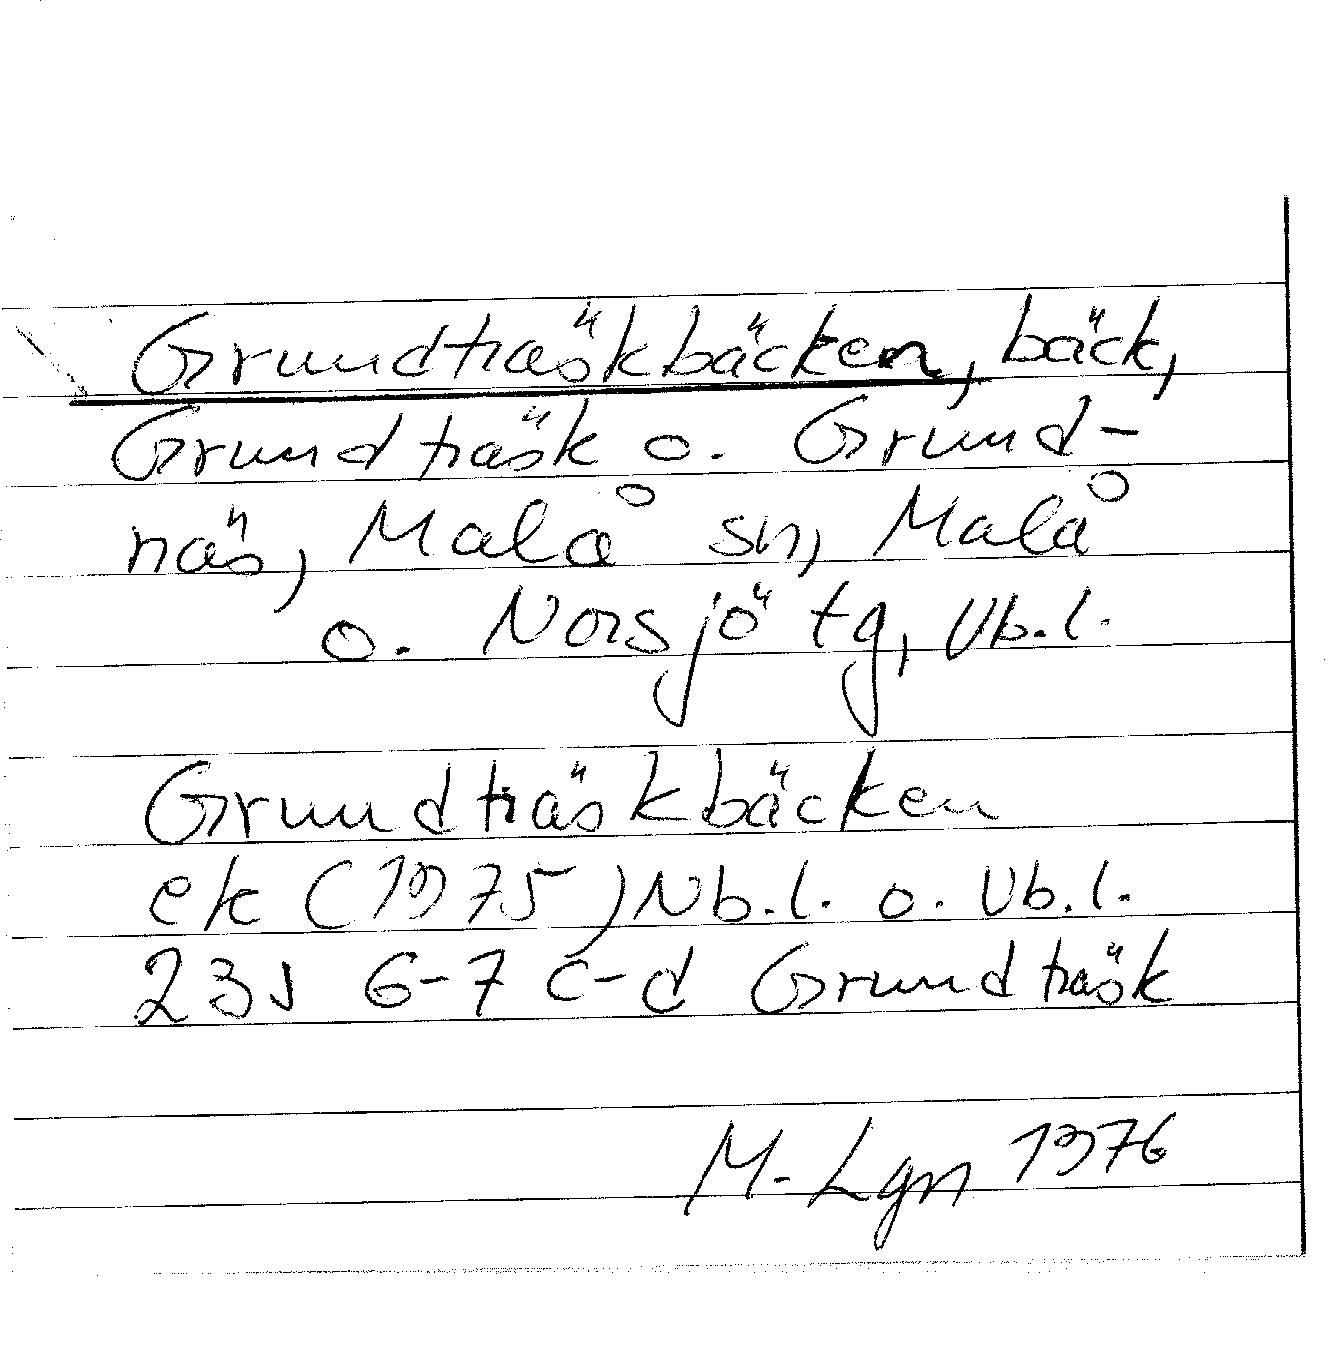 Grundträskbäcken, bäck,
Grundträsk o. Grund-
näs, Malå sn, Malå
o. Norsjö tg, Vb.l.
Grundträskbäcken
ek (1975) Nb.l. o. Vb.l.
23J 6-7 c-d Grundträsk
M. Lgn 1976